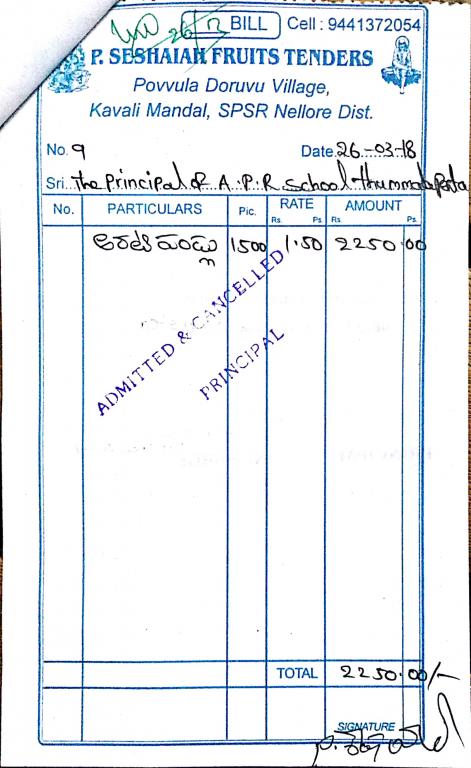 26/3 BILL Cell : 9441372054
P. SESHAIAH FRUITS TENDERS
Povvula Doruvu Village,
Kavali Mandal, SPSR Nellore Dist.
No. 9 Date 26-03-18
Sri. The principal of A.P.R School Thummalapenta
No. PARTICULARS Pic. RATE AMOUNT
Rs. Ps. Rs. Ps.
అరటి పండ్లు 1500 1.50 2250.00
ADMITTED & CANCELLED
PRINCIPAL
TOTAL 2250.00/-
SIGNATURE